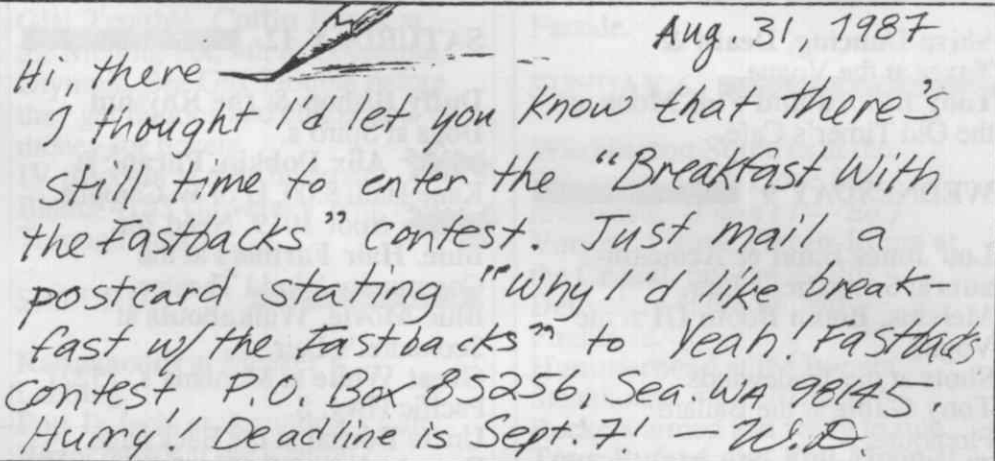 Aug. 31, 1987
Hi, there
I thought I'd let you know that there's
still time to enter the "Breakfast With
the Fastbacks" Contest. Just mail a
postcard stating "Why I'd like break-
fast w/ the Fastbacks" to Yeah! Fastbacks
Contest, P.O. Box 85256, Sea. WA 98145.
Hurry! Deadline is Sept. 7!